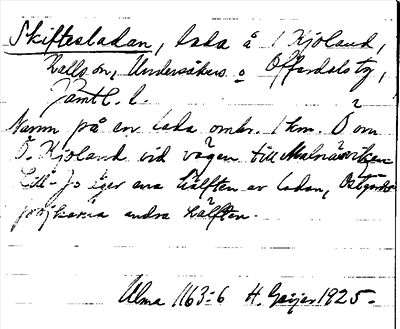 Skiftesladan, lada å 1 Kjöland,
Kalls sn, Undersåkers o Offerdals tg,
Jämtl. l.
Namn på en lada omkr. 1 km. Ö om
Ö. Kjöland vid vägen till Malmåviken
Lill-Jo äger ena hälften av ladan,
andra hälften.
Ulma 1163:6 H. Geijer 1925.